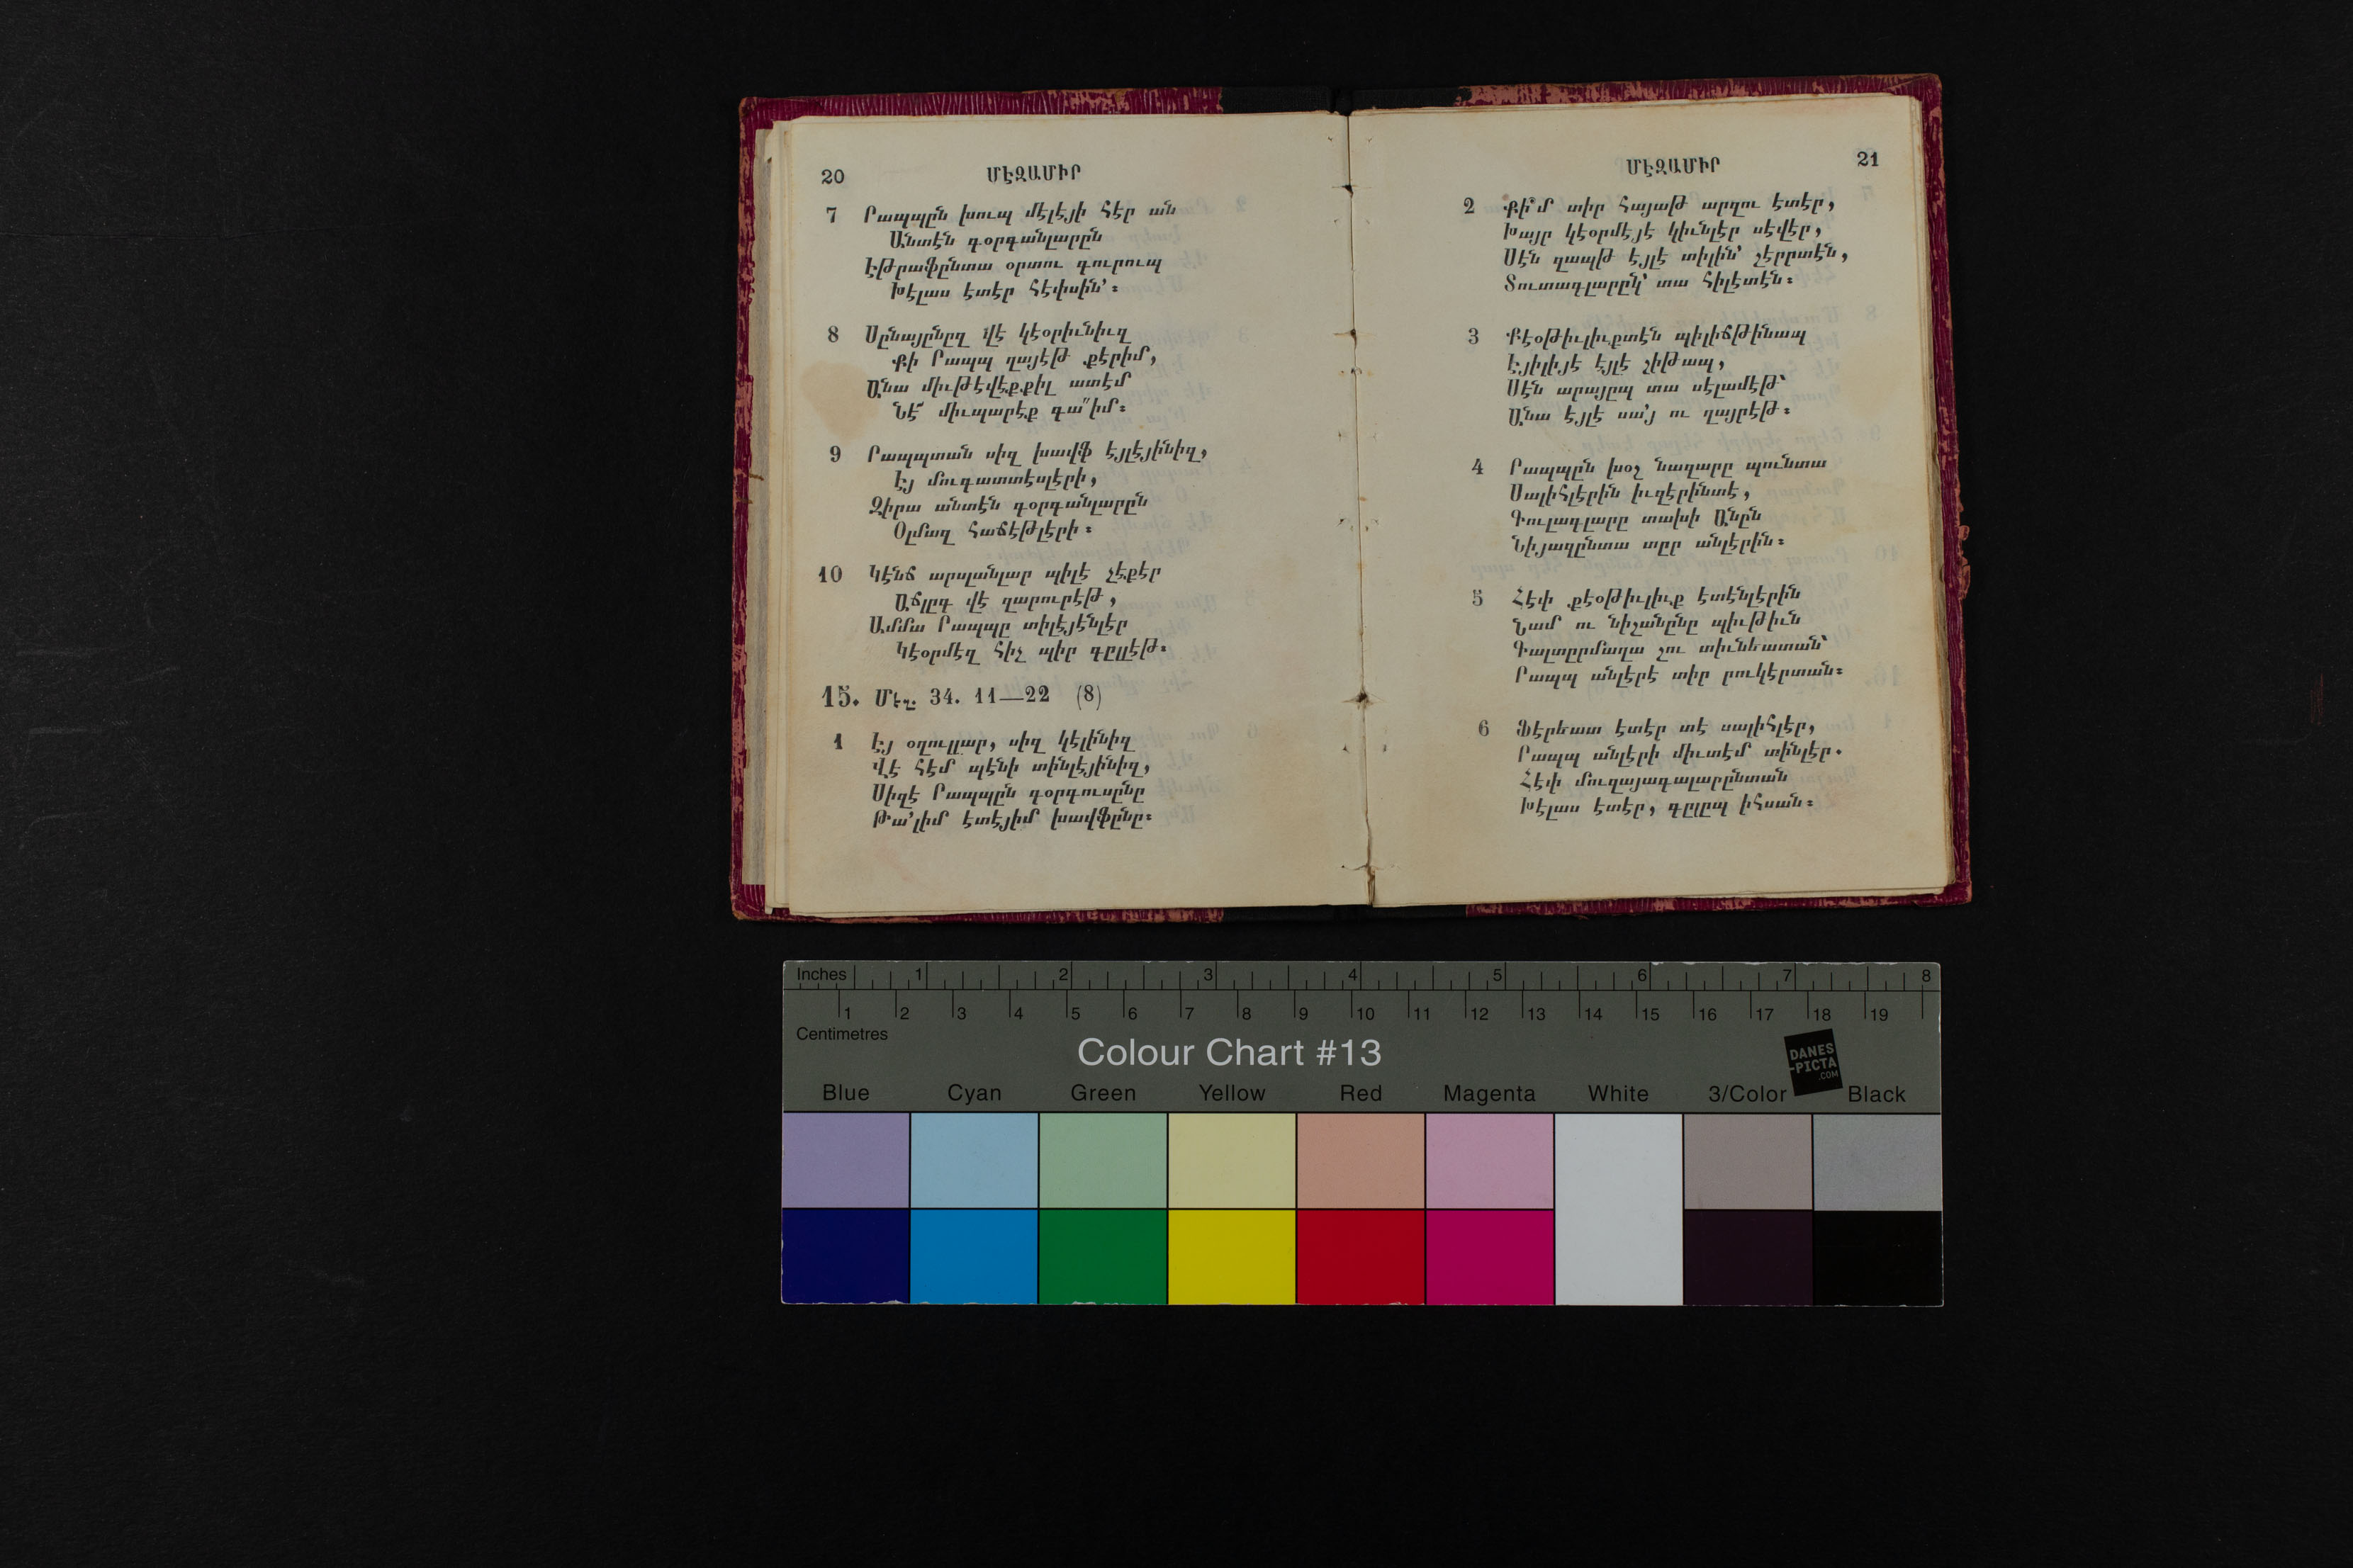 20 ՄԷԶԱՄԻՐ
7 Րապպըն խուպ մէլէյի հէր ան
Անտէն գօրգանլարըն
Էթրաֆընտա օրտու գուրուպ
Խէլաս էտէր հէփսին՚։
8 Սընայընըզ վէ կէօրիւնիւզ
Քի Րապպ ղայէթ քէրիմ,
Անա միւթէվէքքիլ ատէմ
Նէ՜ միւպարէք գա՞իմ։
9 Րապպտան սիզ խավֆ էյլէյինիզ,
Էյ մուգատտէսլէրի,
Զիրա անտէն գօրգանլարըն
Օլմազ հաճէթլէրի։
10 Կէնճ արսլանլար պիլէ չէքէր
Աճլըգ վէ զարուրէթ,
Ամմա Րապպը տիլէյէնլէր
Կէօրմէզ հիչ պիր գըլլէթ։
15. Մէզ. 34. 11—22 (8)
1 Էյ օղուլլար, սիզ կէլինիզ
Վէ հէմ պէնի տինլէյինիզ,
Սիզէ Րապպըն գօրգուսընը
Թա՚լիմ էտէյիմ խավֆընը։
ՄԷԶԱՄԻՐ 21
2 Քի՞մ տիր հայաթ արզու էտէր,
Խայր կէօրմէյէ կիւնլէր սէվէր,
Սէն զապթ էյլէ տիլին՚ չէրրտէն,
Տուտագլարըն՚ տա հիլէտէն։
3 Քէօթիւլիւքտէն պիլիճթինապ
Էյիլիյէ էյլէ չիթապ,
Սէն արայըպ տա սէլամէթ՝
Անա էյլէ սա՚յ ու ղայրէթ։
4 Րապպըն խօշ նազարը պունտա
Սալիհլէրին իւզէրինտէ,
Գուլագլարը տախի Անըն
Նիյազընտա տըր անլէրին։
5 Հէփ քէօթիւլիւք էտէնլէրին
Նամ ու նիշանընը պիւթիւն
Գալտըրմաղա շու տիւնեատան՝
Րապպ անլէրէ տիր րուկէրտան։
6 Ֆէրեատ էտէր տէ սալիհլէր,
Րապպ անլէրի միւտէմ տինլէր.
Հէփ մուզայագալարընտան
Խէլաս էտէր, գըլըպ իհսան։
Inches 1 2 3 4 5 6 7 8
1 2 3 4 5 6 7 8 9 10 11 12 13 14 15 16 17 18 19
Centimetres
Colour Chart #13
DANES
-PICTA
.COM
Blue Cyan Green Yellow Red Magenta White 3/Color Black